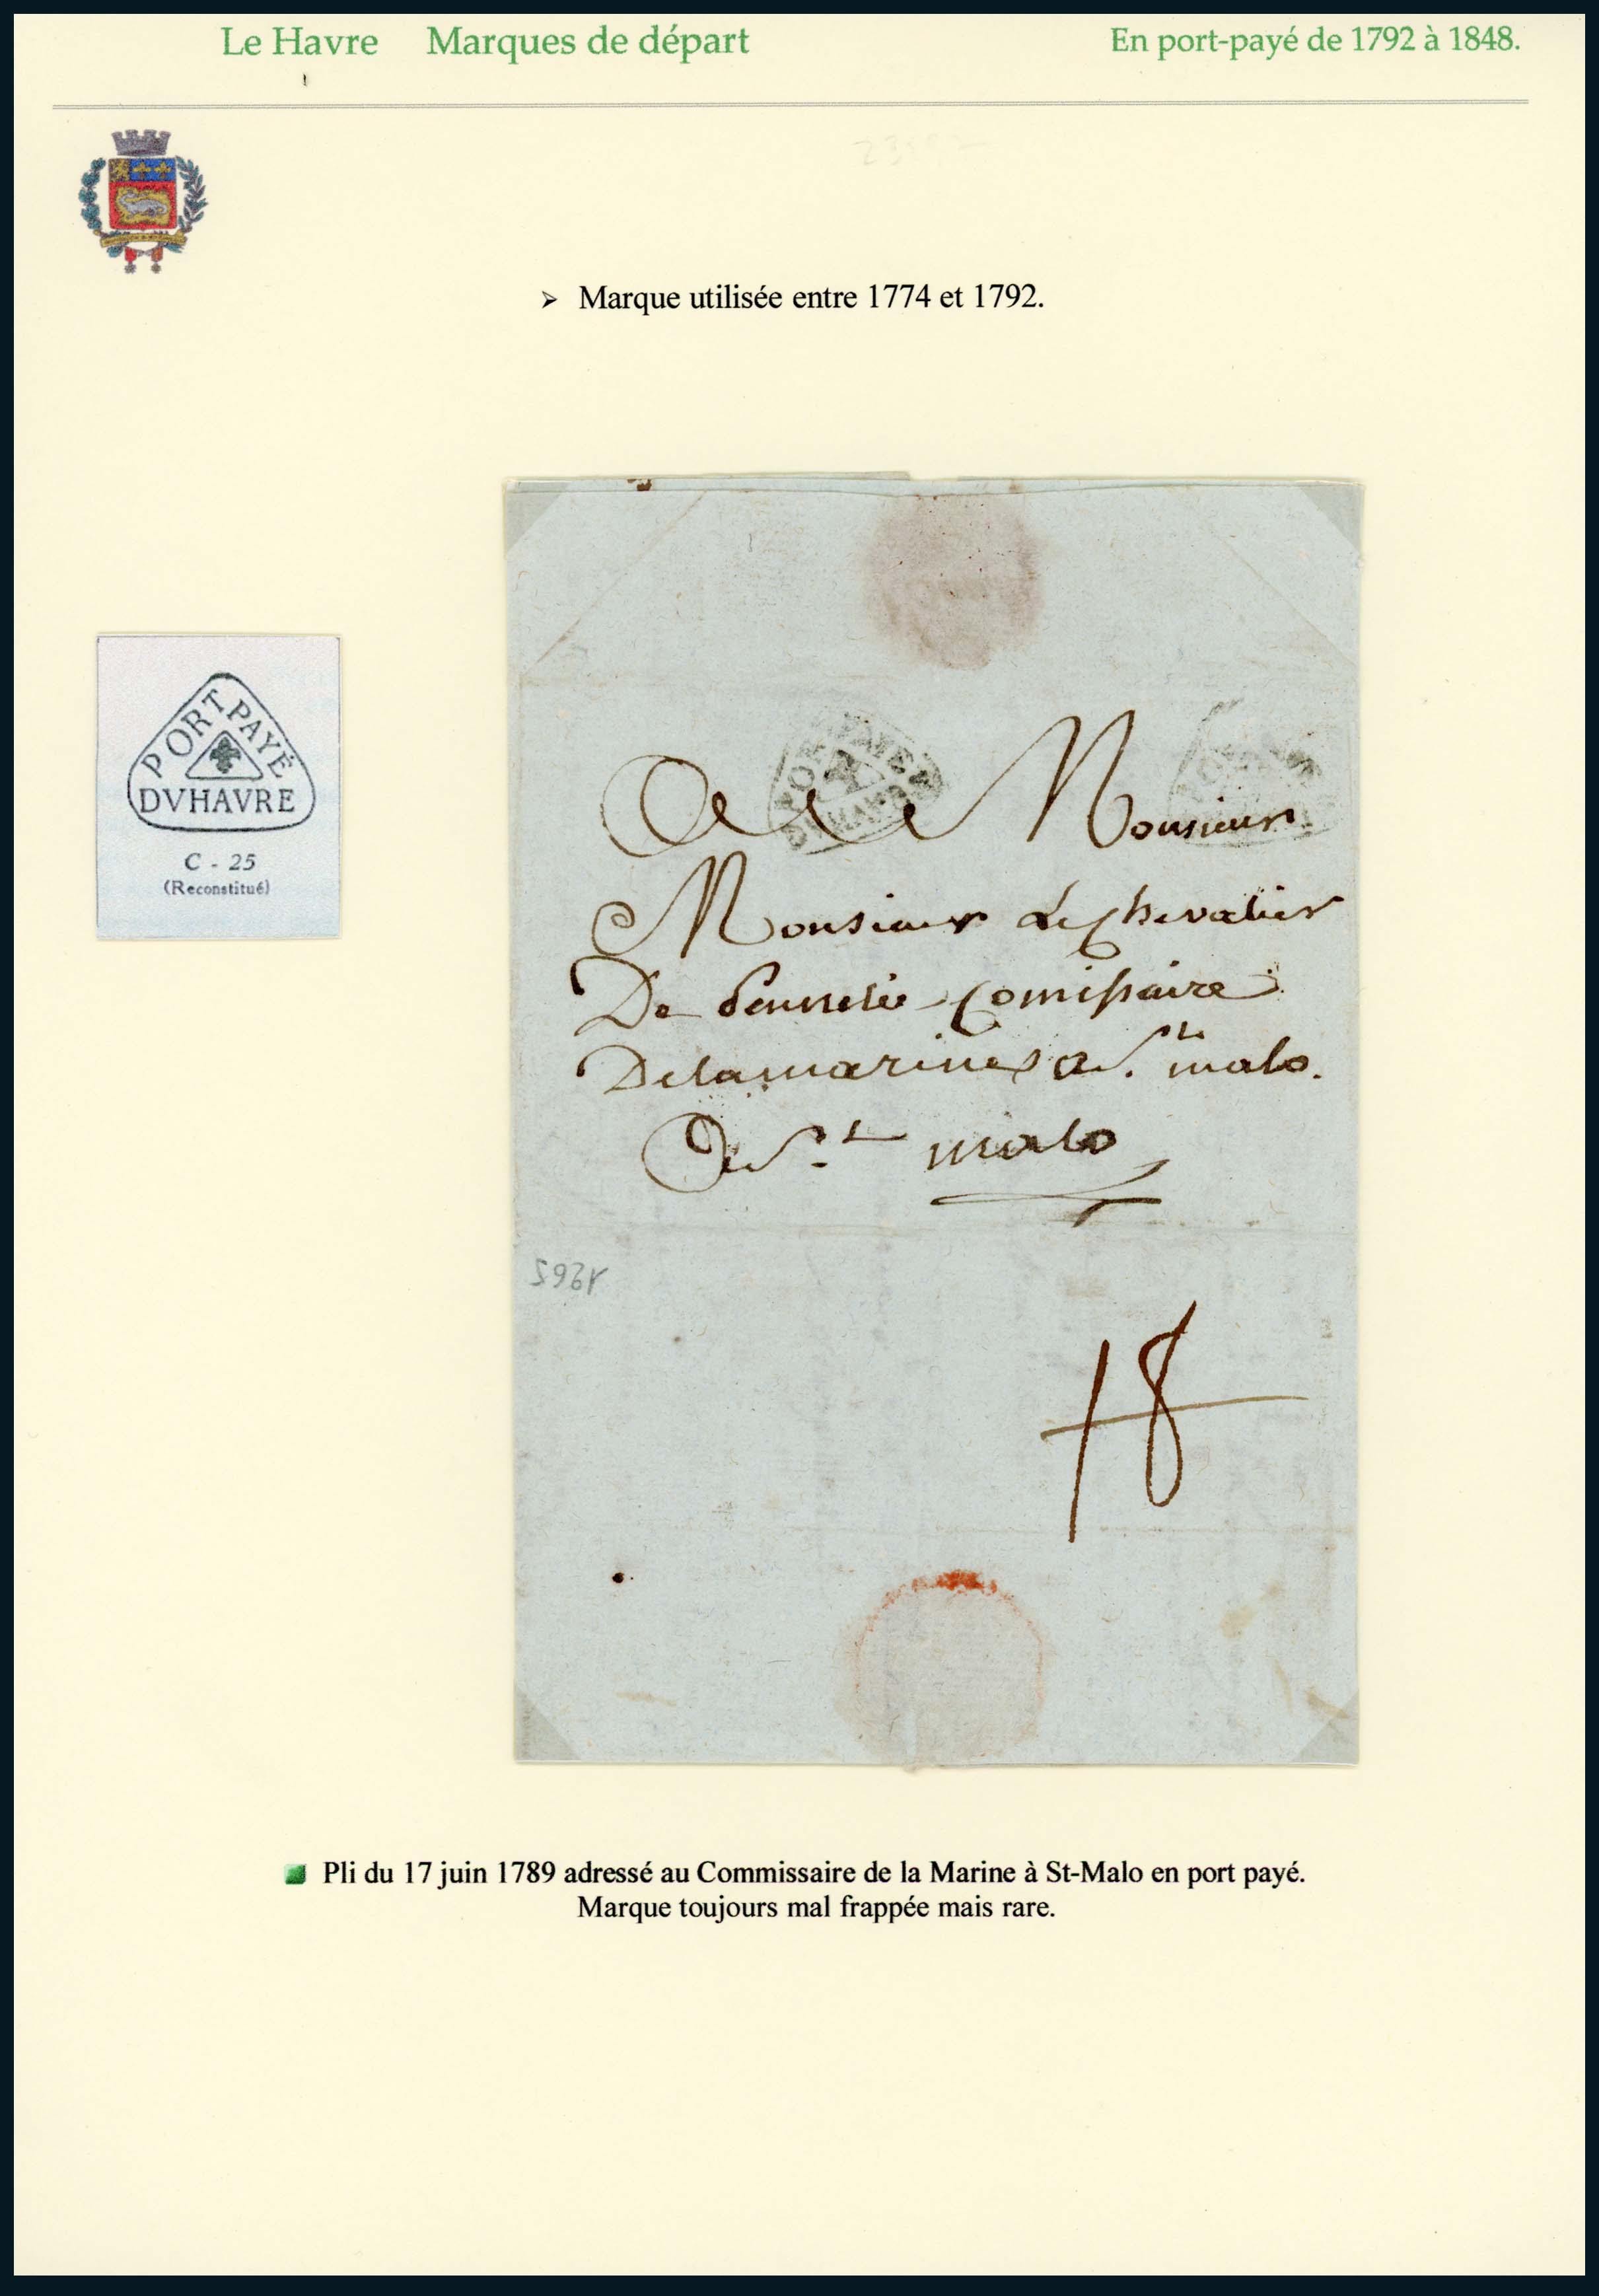 Le Havre Marques de départ En port-payé de 1792 à 1848.
➢ Marque utilisée entre 1774 et 1792.
PORT PAYÉ
DVHAVRE
C - 25
(Reconstitué)
A Monsieur
Monsieur Le chevalier
De Comissaire
Delamarine a St malo.
A St malo
18
Pli du 17 juin 1789 adressé au Commissaire de la Marine à St-Malo en port payé.
Marque toujours mal frappée mais rare.